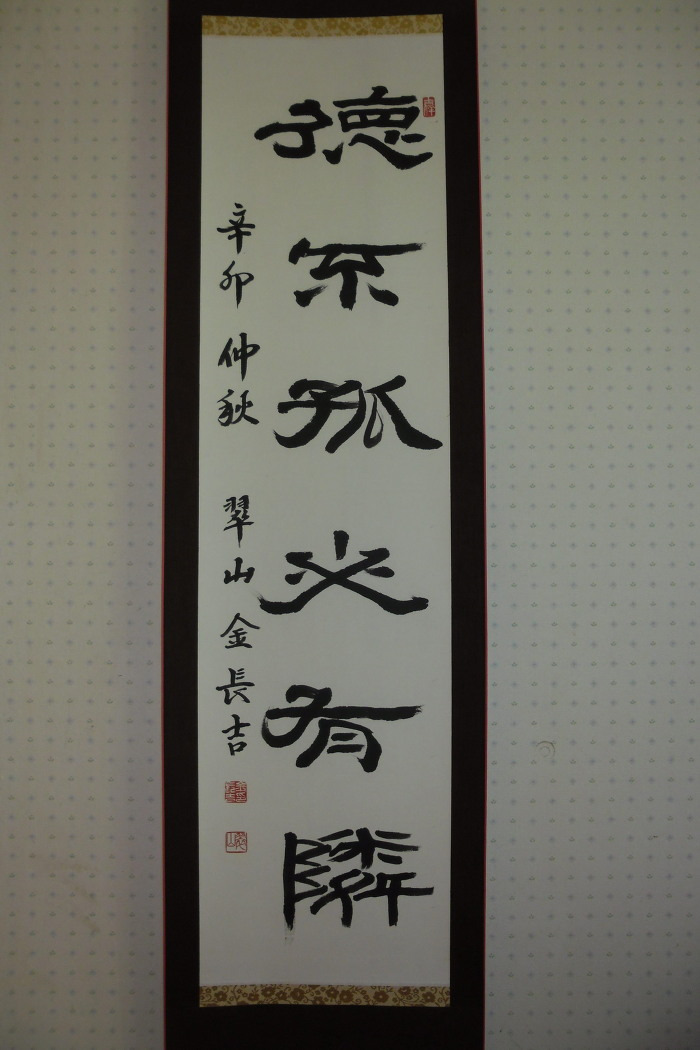 德不孤必有隣
辛卯仲秋 翠山金長吉